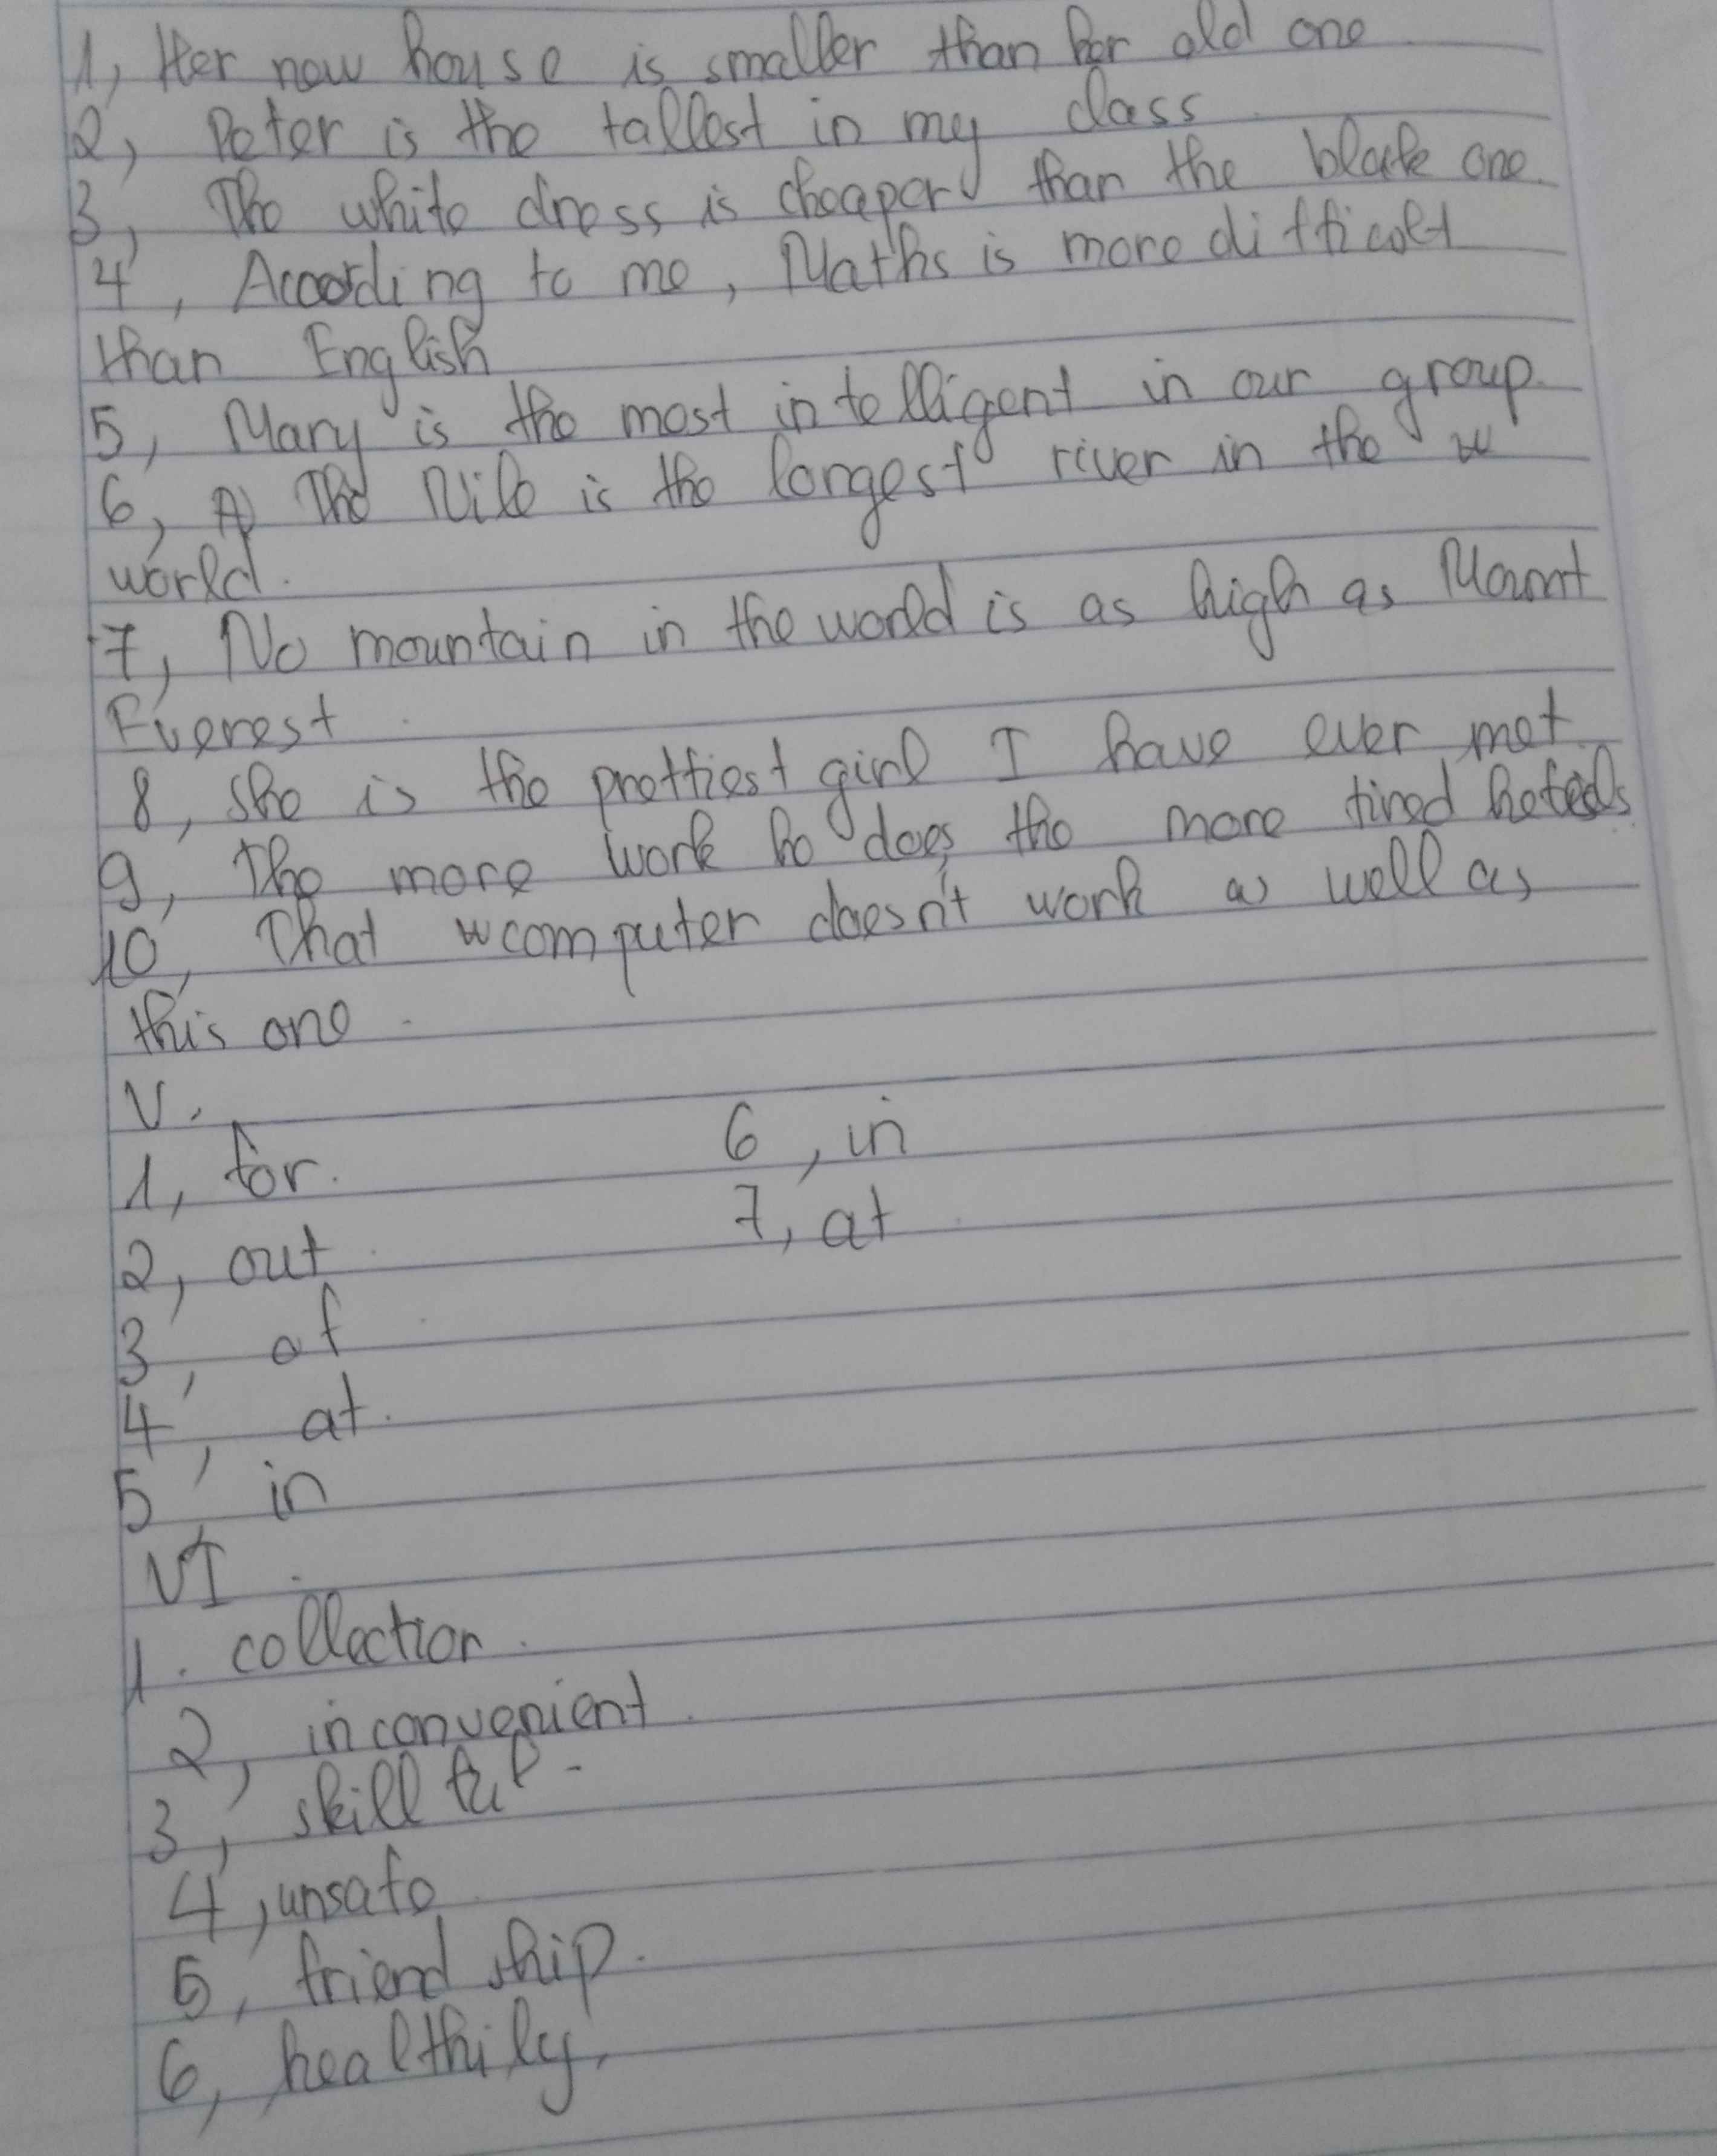 1, Her new house is smaller than her old one
2, Peter is the tallest in my class
3, The white dress is cheaper than the black one.
4, According to me, Maths is more difficult
than English
5, Mary is the most intelligent in our group.
6, The Nile is the longest river in the w
world.
7, No mountain in the world is as high as Mount
Everest.
8, She is the prettiest girl I have ever met.
9, The more work he does, the more tired he feels.
10, That computer doesn't work as well as
this one.
V.
1, for.
6, in
2, out.
7, at.
3, of.
4, at.
5, in
VI.
1. collection.
2, inconvenient.
3, skillful.
4, unsafe.
5, friendship.
6, healthily.